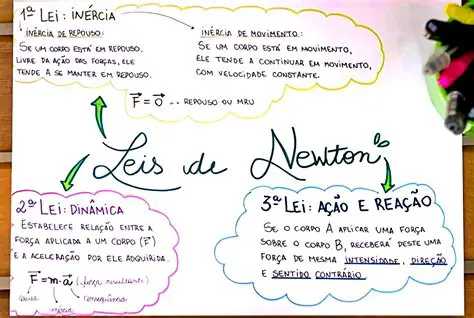 1ª LEI: INÉRCIA
INÉRCIA DE REPOUSO:
SE UM CORPO ESTÁ EM REPOUSO,
LIVRE DA AÇÃO DAS FORÇAS, ELE
TENDE A SE MANTER EM REPOUSO.
INÉRCIA DE MOVIMENTO:
SE UM CORPO ESTÁ EM MOVIMENTO,
ELE TENDE A CONTINUAR EM MOVIMENTO,
COM VELOCIDADE CONSTANTE.
F = 0 ... REPOUSO OU MRU
Leis de Newton
2ª LEI: DINÂMICA
ESTABELECE RELAÇÃO ENTRE A
FORÇA APLICADA A UM CORPO (F)
E A ACELERAÇÃO POR ELE ADQUIRIDA.
F = m · a (força resultante)
causa
inércia
consequência
3ª LEI: AÇÃO E REAÇÃO
SE O CORPO A APLICAR UMA FORÇA
SOBRE O CORPO B, RECEBERÁ DESTE UMA
FORÇA DE MESMA INTENSIDADE, DIREÇÃO
E SENTIDO CONTRÁRIO.